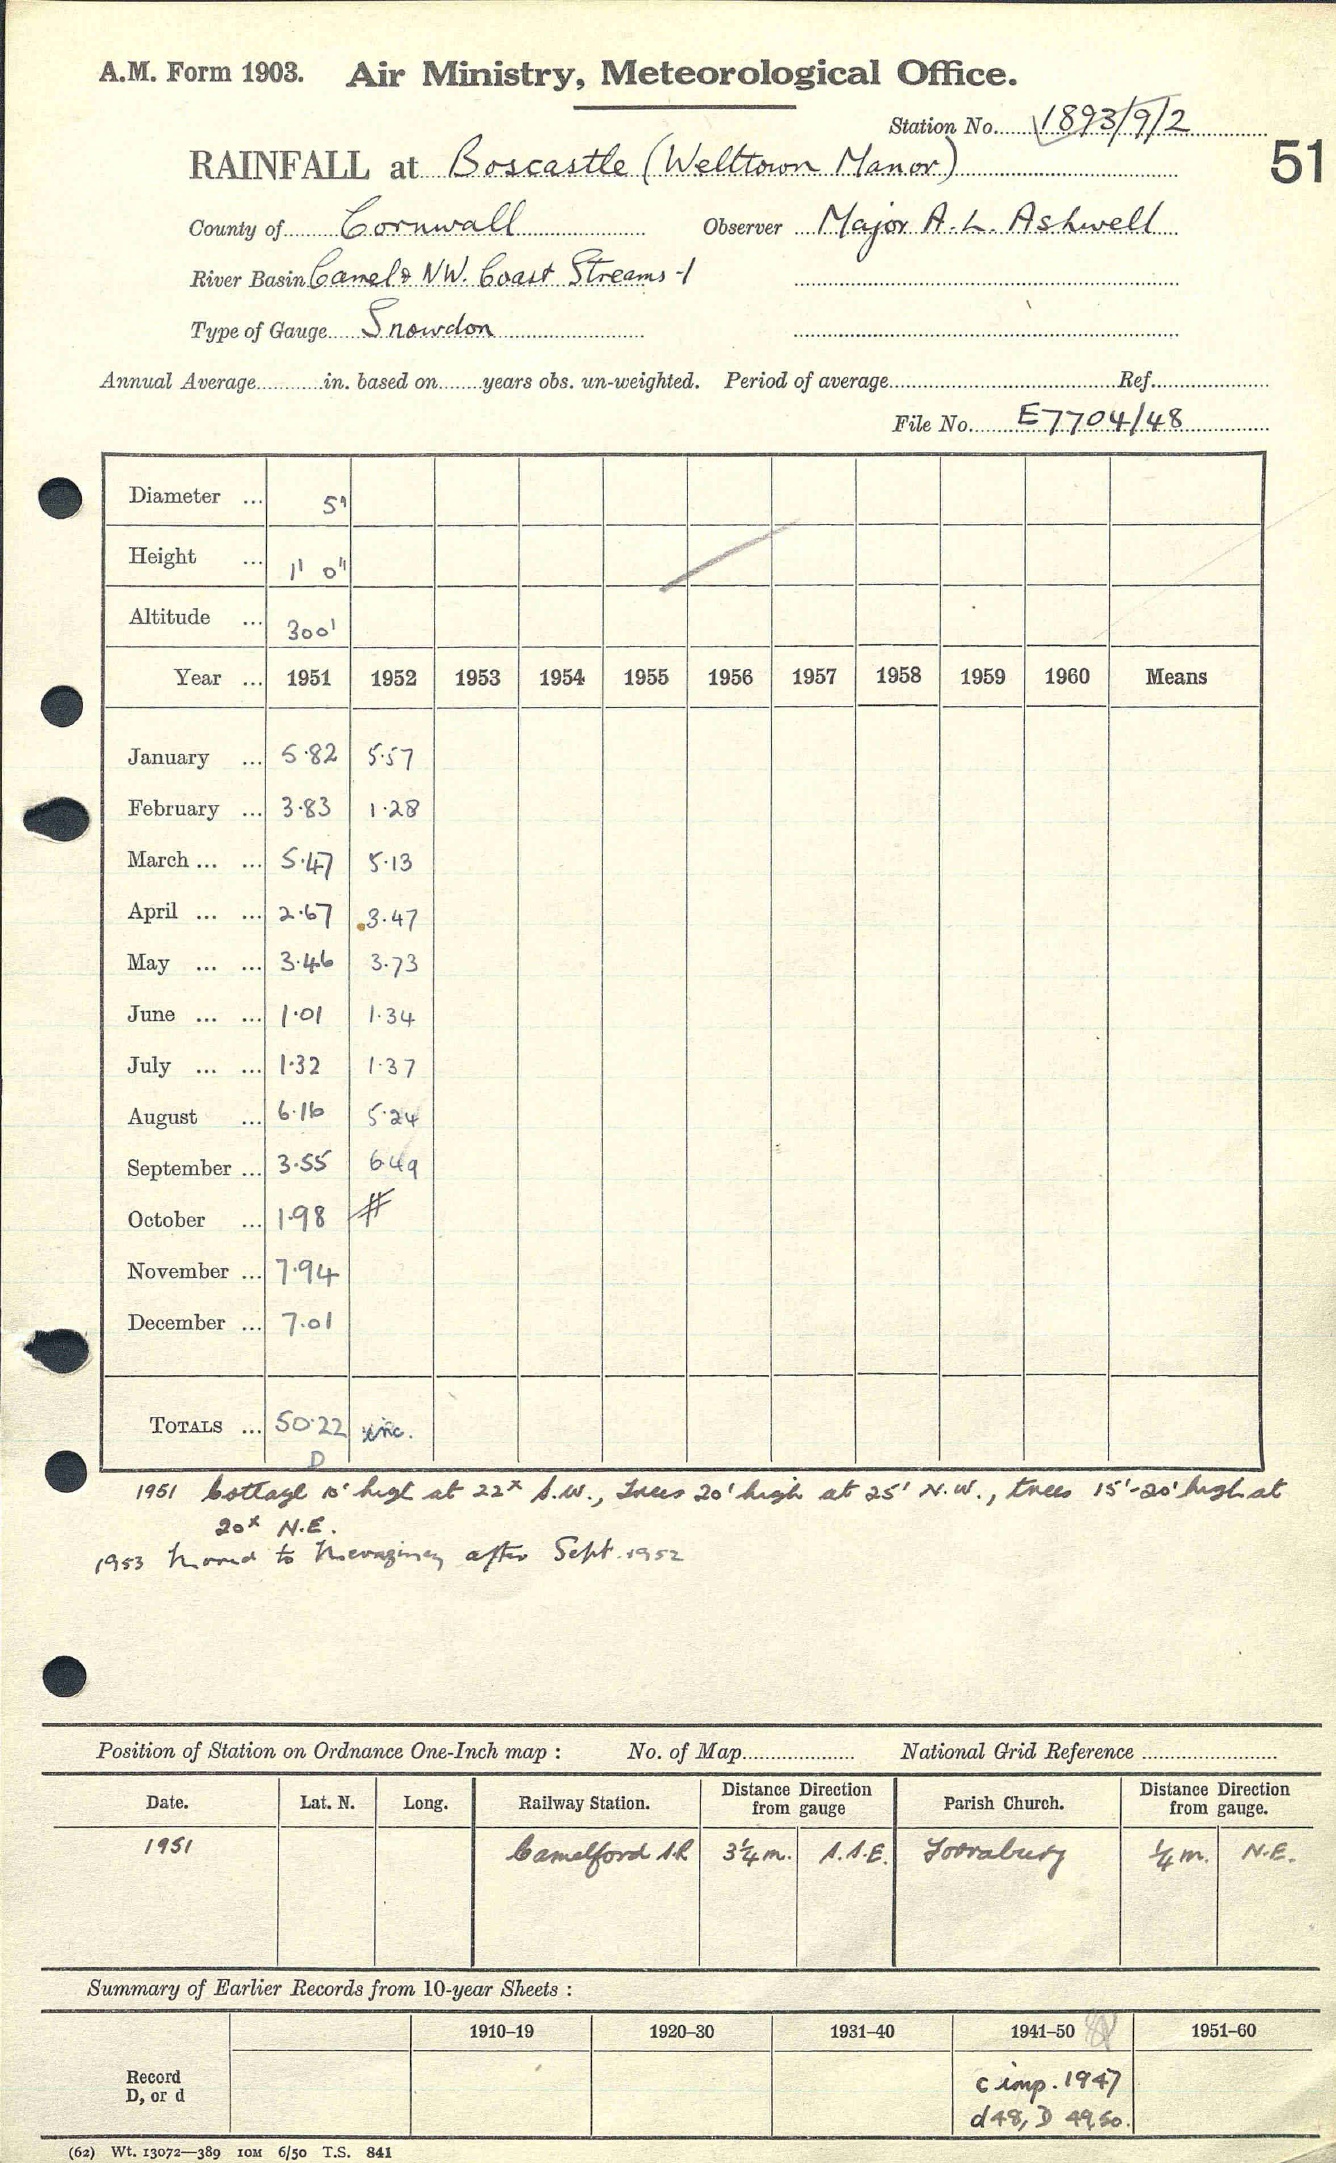 A.M. Form 1903. Air Ministry, Meteorological Office.
Station No. 1893/9/2
RAINFALL at Boscastle (Welltown Manor)
51
County of Cornwall Observer Major A.L. Ashwell
River Basin Camel & NW. Coast Streams -1
Type of Gauge Snowdon
Annual Average in. based on years obs. un-weighted. Period of average Ref.
File No. E7704/48
Diameter ... 5"
Height ... 1' 0"
Altitude ... 300'
Year ... 1951 1952 1953 1954 1955 1956 1957 1958 1959 1960 Means
January ... 5.82 5.57
February ... 3.83 1.28
March ... ... 5.47 5.13
April ... ... 2.67 3.47
May ... ... 3.46 3.73
June ... ... 1.01 1.34
July ... ... 1.32 1.37
August ... 6.16 5.24
September ... 3.55 6.49
October ... 1.98 #
November ... 7.94
December ... 7.01
TOTALS ... 50.22 inc.
D
1951 Cottage high at 22x S.W., trees 20' high at 25' N.W., trees 15'-20' high at
20x N.E.
1953 Moved to after Sept. 1952
Position of Station on Ordnance One-Inch map : No. of Map National Grid Reference
Date. Lat. N. Long. Railway Station. Distance Direction from gauge Parish Church. Distance Direction from gauge.
1951 Camelford S.R. 3¼ m. S.S.E. ¼ m. N.E.
Summary of Earlier Records from 10-year Sheets :
1910–19 1920–30 1931–40 1941–50 1951–60
Record
D, or d
c imp. 1947
d 48, D 49, 50.
(62) Wt. 13072—389 10M 6/50 T.S. 841